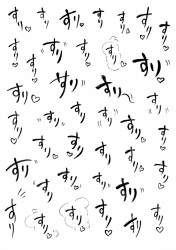 すり♡ すり♡ すり すり♡ すり♡ すり♡
すり♡ すり すり すり すり すり
すり すり すり♡ すり
すり すり すり すり〜
すり♡ すり すり♡ すり すり♡ すり
すり すり♡ すり♡ すり♡ すり
すり すり すり すり すり
すり すり♡ すり すり すり♡
すり すり♡ すり♡ すり すり すり♡ すり